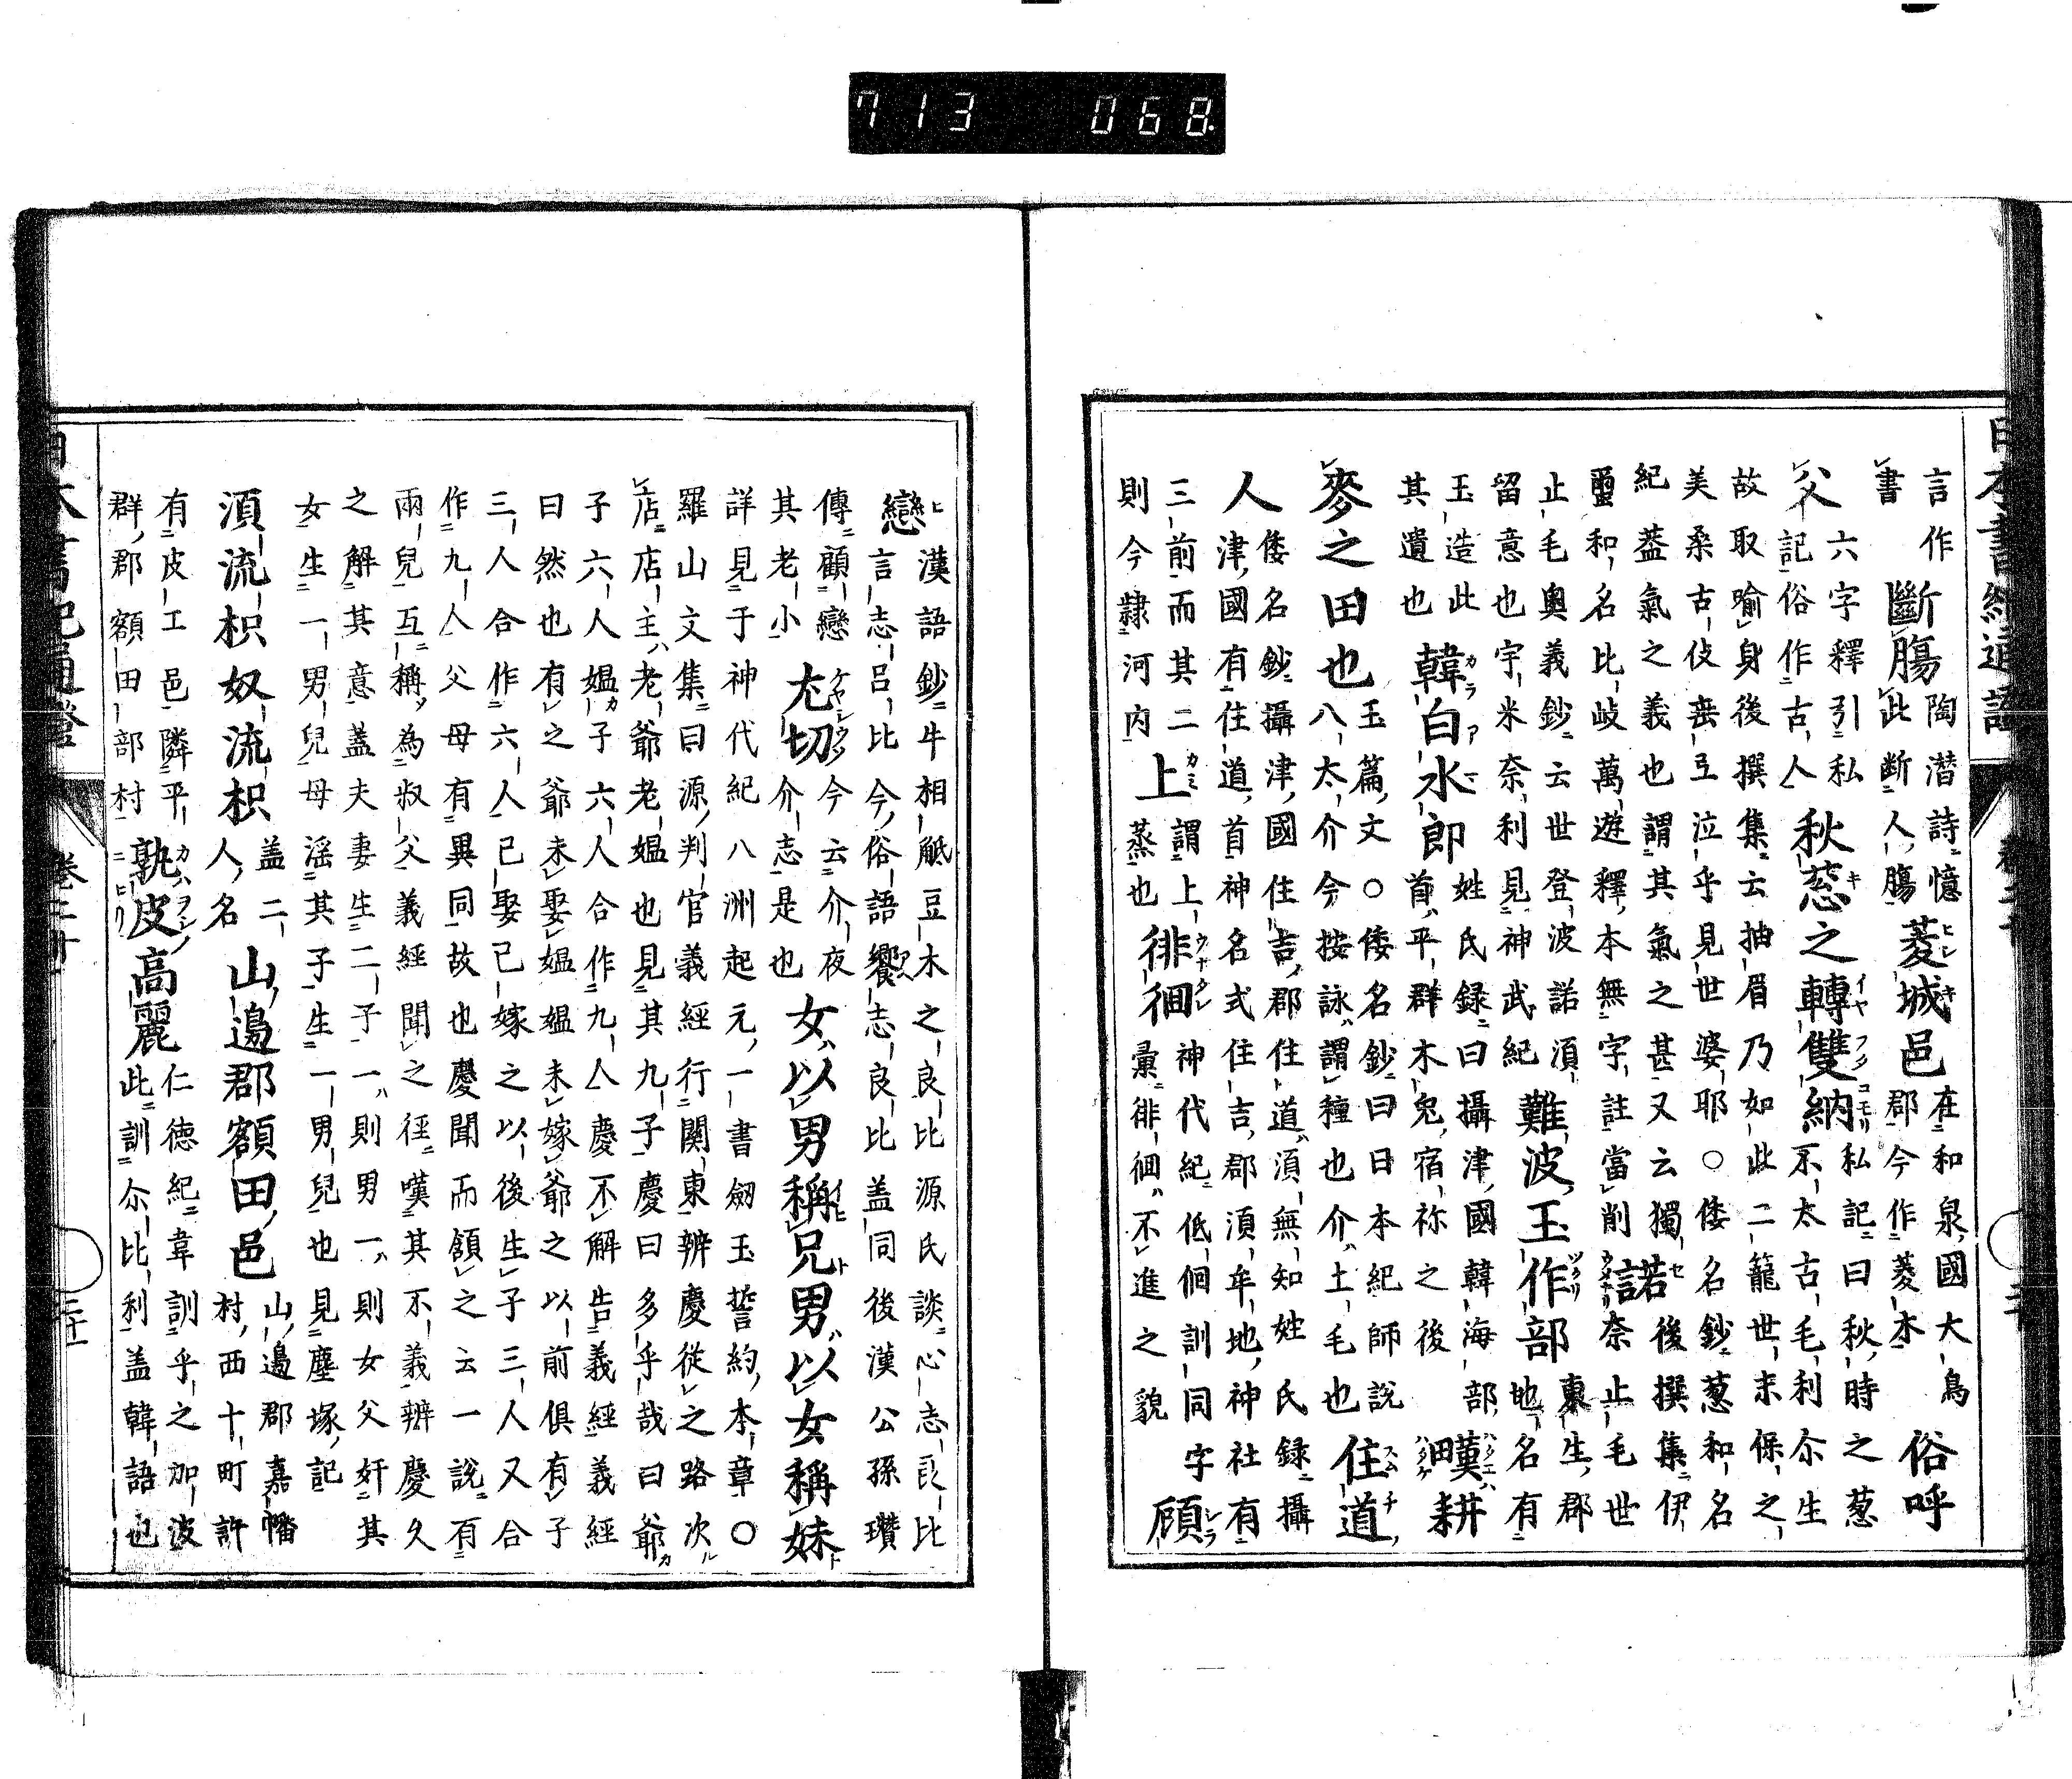 713 068
言作
書
斷膓
陶潜詩憶
此断人膓
菱城邑
在和泉國大鳥
郡今作菱木
俗呼
父
六字釋引私
記俗作古人
秋葱之轉雙納
私記曰秋時之葱
不太古毛利尒生
故取喻身後撰集云抽眉乃如此二籠世末保之
美桒古伎乗弖泣乎見世婆耶○倭名鈔葱和名
紀葢氣之義也謂其氣之甚又云獨
諾
後撰集伊
爾和名比岐萬遊釋本無字註當削
奈止毛世
止毛奥義鈔云世登波諾湏
留意也宇米奈利見神武紀
難波玉作部
東生郡
地名有
玉造此
其遺也
韓白水郎
姓氏録曰攝津國韓海部
首平群木兔宿祢之後
𤳉
耕
麥之田也
玉篇文○倭名鈔曰日本紀師說
八太介今按詠謂種也介土毛也
住道
人
倭名鈔攝津國住吉郡住道湏無知姓氏録攝
津國有住道首神名式住吉郡湏牟地神社有
三前而其二
則今隷河内
上
謂上
蒸也
徘徊
神代紀低徊訓同字
彚徘徊不進之貌
顧
戀
漢語鈔牛相觝豆木之良比源氏談心志良比
言志呂比今俗語饗志良比盖同後漢公孫瓚
傳顧戀
其老小
尤切
今云介夜
介志是也
女以男稱兄男以女稱妹
詳見于神代紀八洲起元一書劒玉誓約本章○
羅山文集曰源判官義經行關東辨慶從之路次
店店主老爺老媼也見其九子慶曰多乎哉曰爺
子六人媼子六人合作九人慶不解告義經義經
曰然也有之爺未娶媼媼未嫁爺之以前俱有子
三人合作六人已娶已嫁之以後生子三人又合
作九人父母有異同故也慶聞而頷之云一說有
兩兒互稱為叔父義經聞之徑嘆其不義辨慶久
之解其意盖夫妻生二子一則男一則女父奸其
女生一男兒母滛其子生一男兒也見塵塚記
湏流枳奴流枳
盖二
人名
山邊郡額田邑
山邊郡嘉幡
村西十町許
有皮工邑隣平
群郡額田部村
𤍨皮高麗
仁德紀韋訓乎之加波
此訓尒比利盖韓語也
日本書紀通證
卷三十
三十一